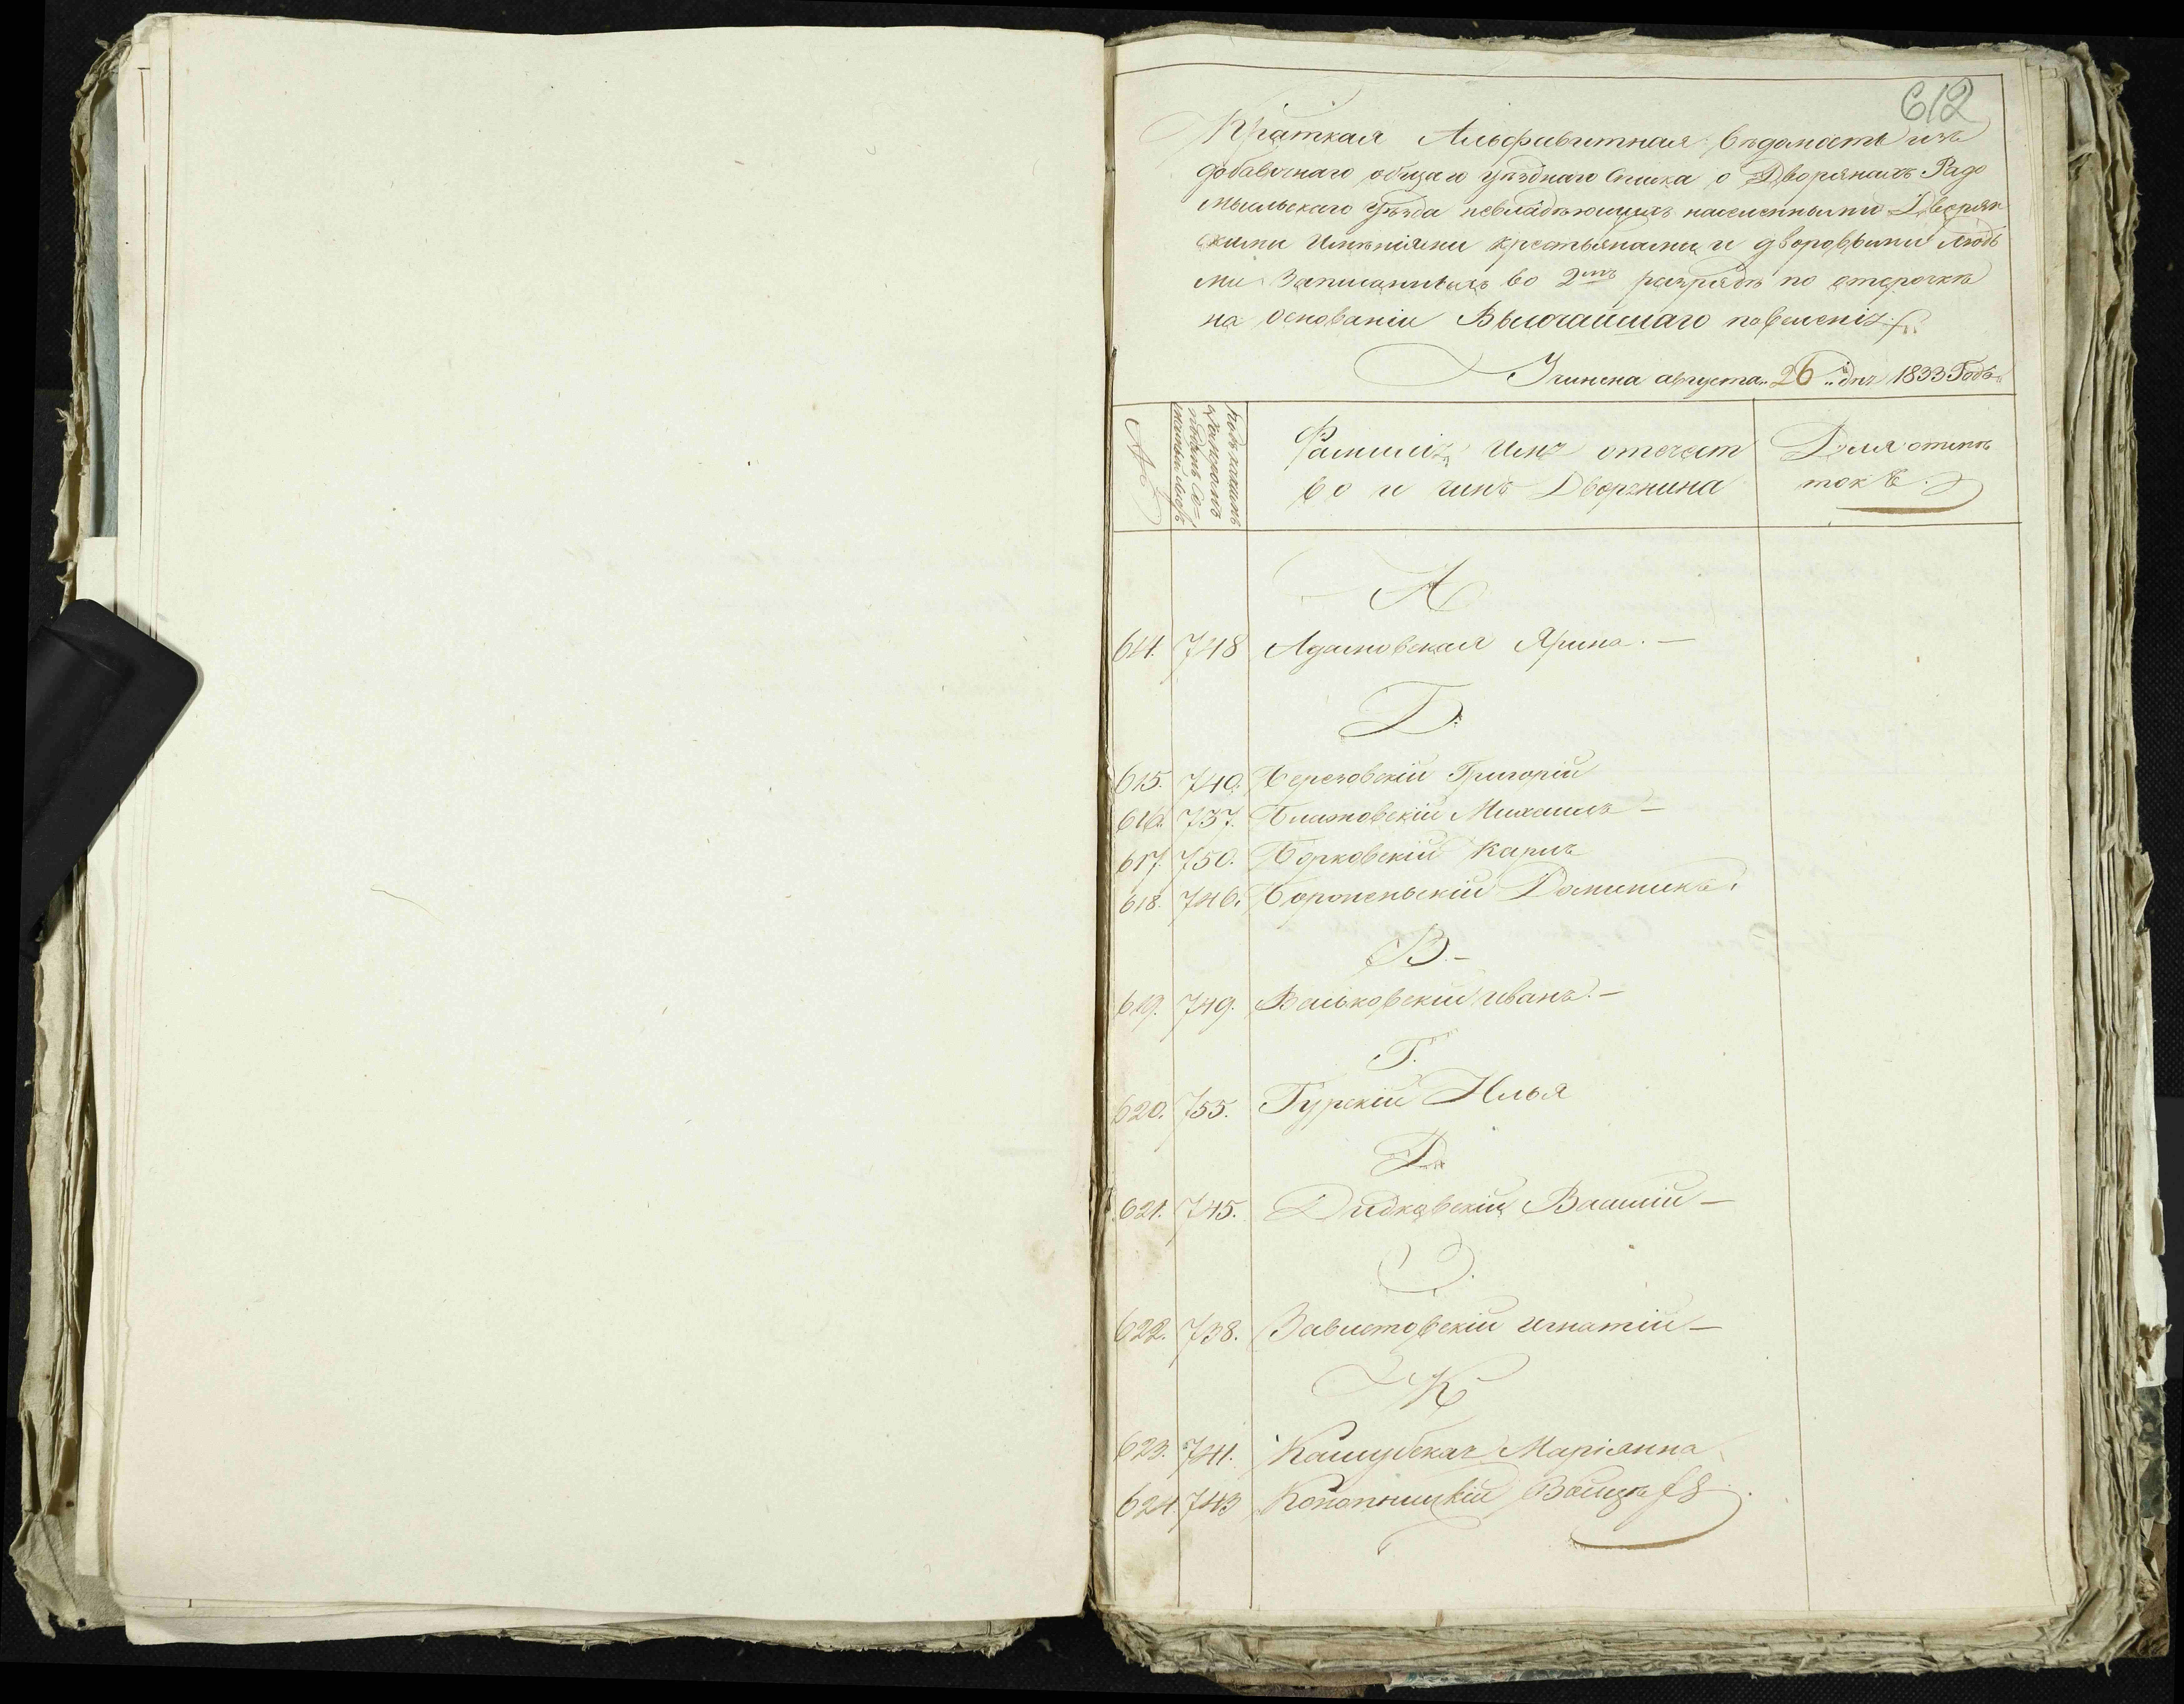 612
Краткая Альфавитная вѣдомость изъ
добавочнаго общаго уѣзднаго списка о Дворянахъ Радо
мысльскаго уѣзда невладѣющихъ населенными Дворян
скими имѣніями крестьянами и дворовыми людь
ми записанныхъ во 2мъ разрядѣ по отсрочкѣ
на основаніи Высочайшаго повеленія
Учинена августа 26 дня 1833 Года
№
Подъ какимъ
номеромъ
Фамилія, имя отечест
во и чинъ Дворянина
Для отмѣ
токъ
А
614. 748 Адамовская Ярина. —
Б.
615. 740. Березовскій Григорій
616. 737. Блажовскій Михаилъ —
617. 750. Борковскій Карлъ
618. 746. Бороненьскій Доминикъ.
В. —
619. 749. Вальковскій иванъ. —
Г.
620. 755. Гурскій Илья
Д.
621. 745. Дидковскій Василій —
З.
622. 738. Завистовскій игнатій —
К
623. 741. Кашубская Маріанна
624. 743 Конопницкій